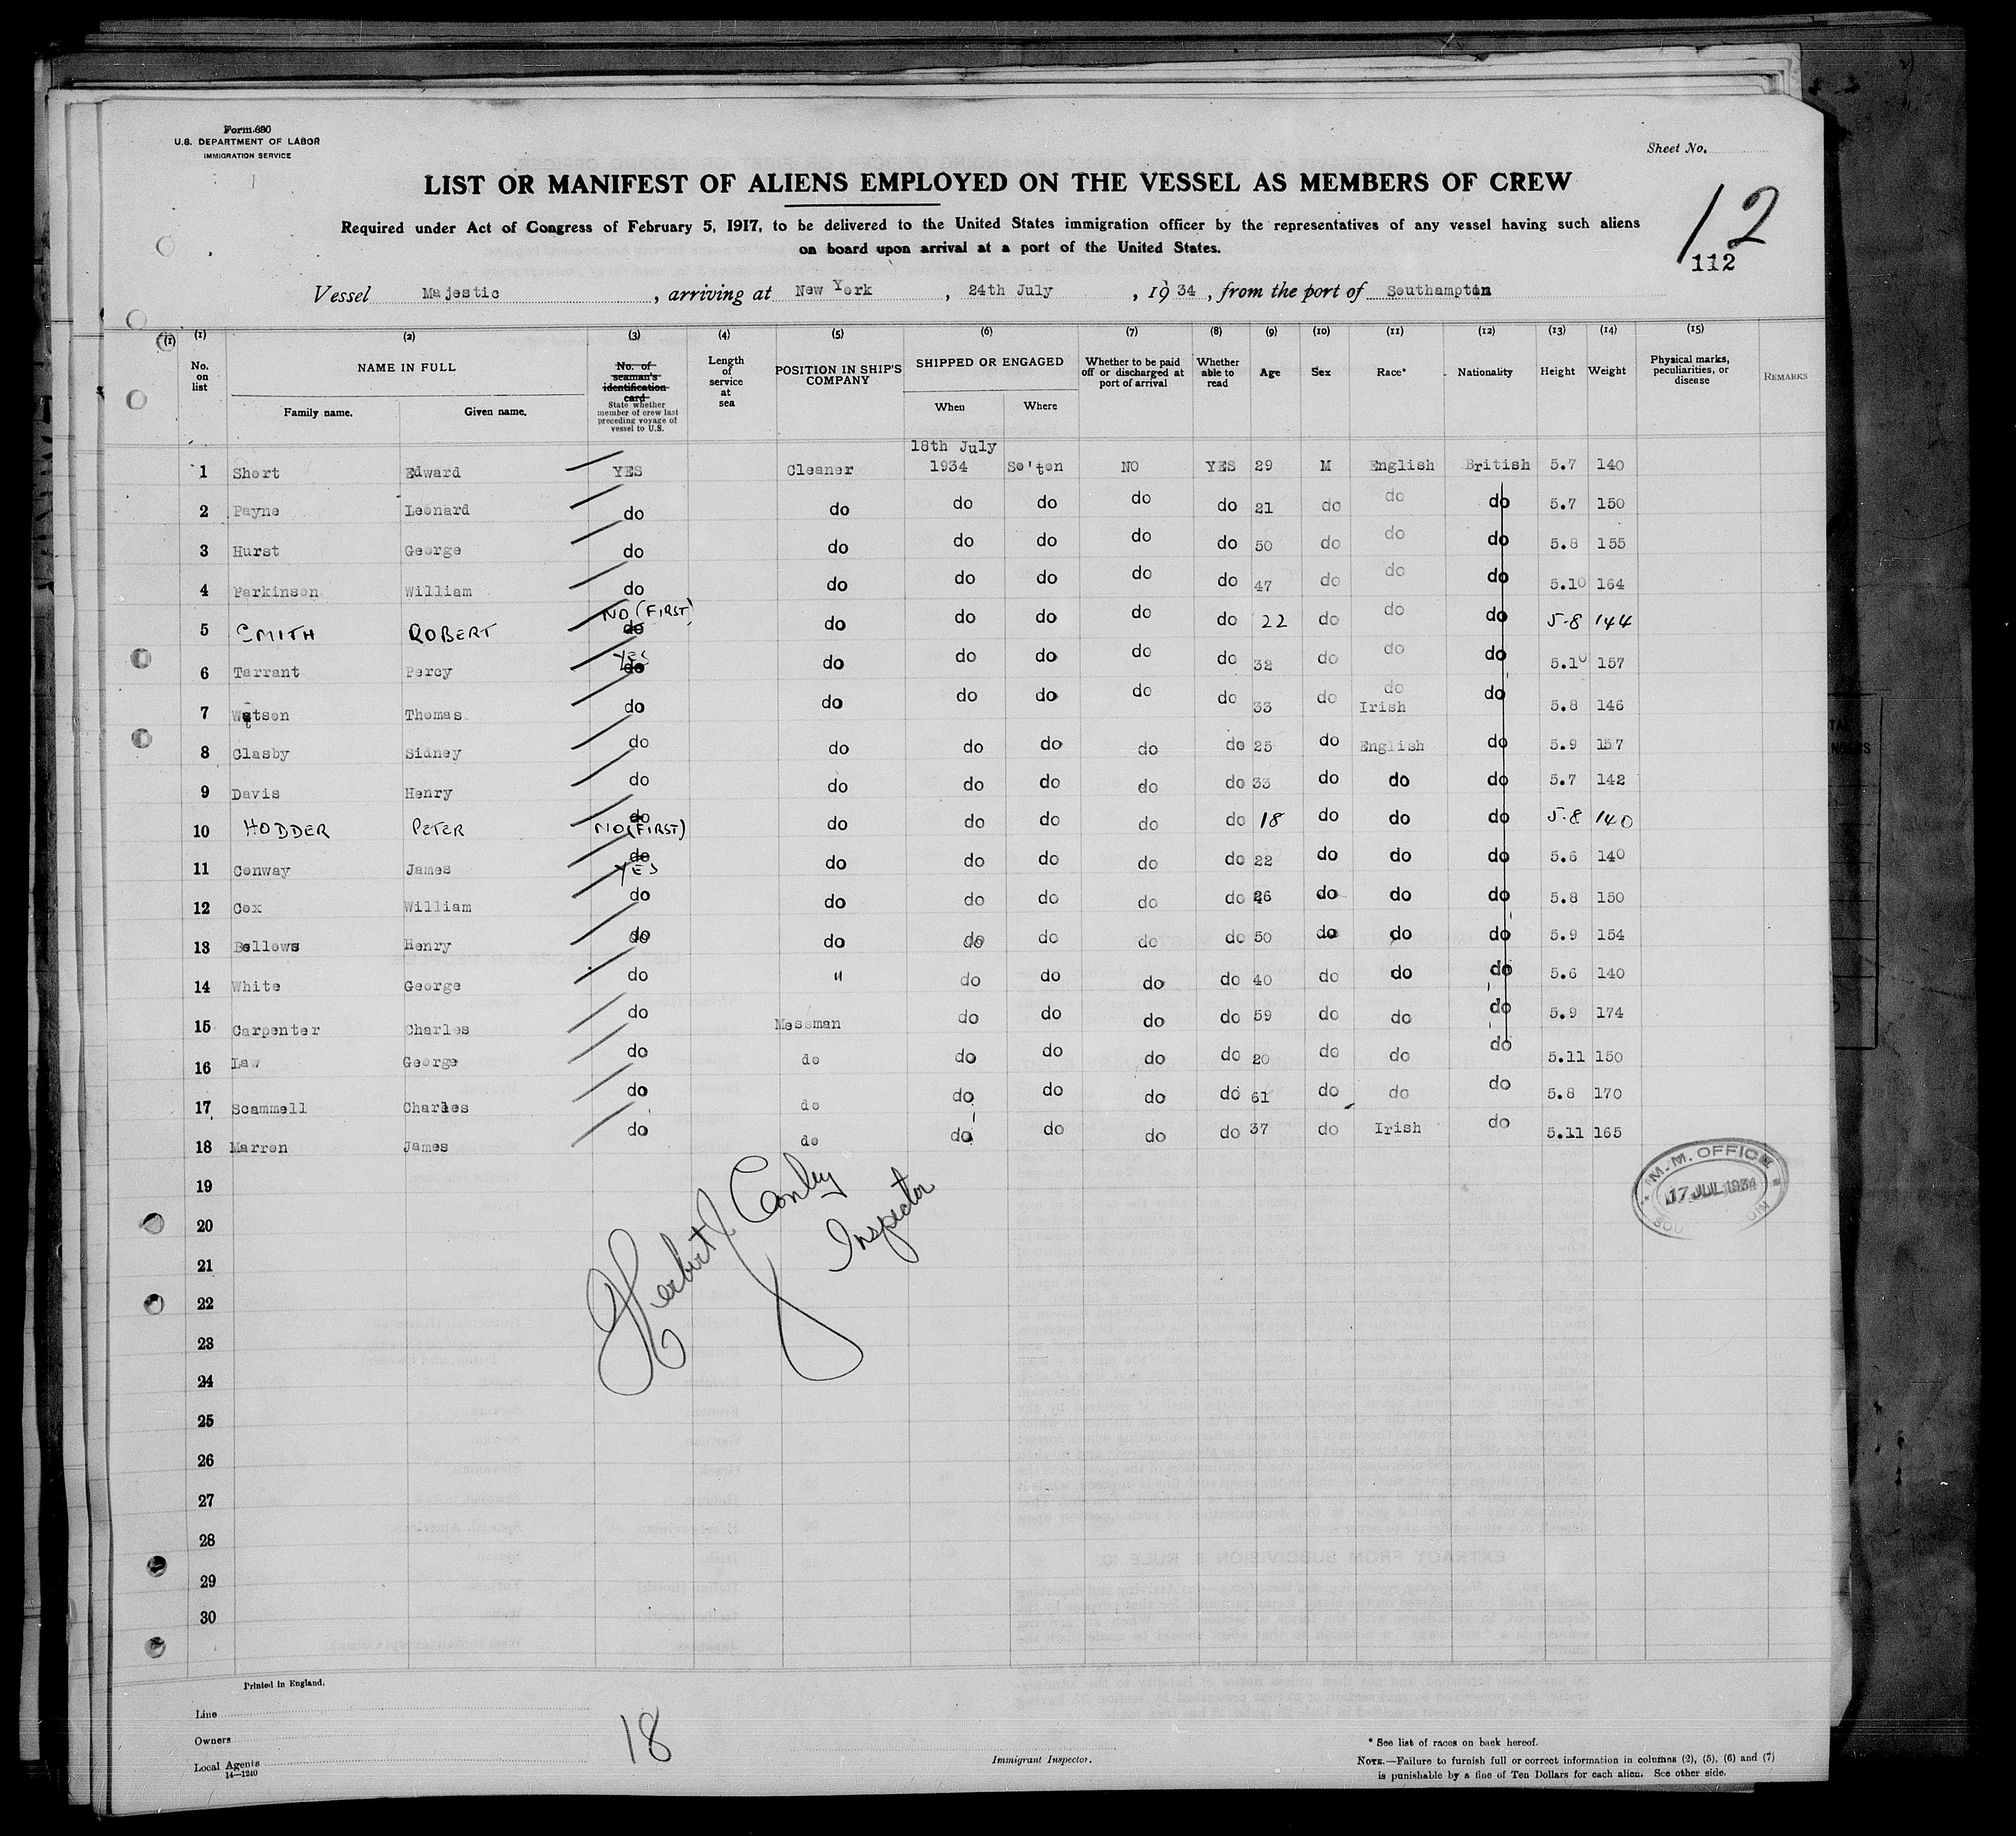 Form 680
U.S. DEPARTMENT OF LABOR
IMMIGRATION SERVICE
Sheet No.
LIST OR MANIFEST OF ALIENS EMPLOYED ON THE VESSEL AS MEMBERS OF CREW
12
Required under Act of Congress of February 5, 1917, to be delivered to the United States immigration officer by the representatives of any vessel having such aliens
on board upon arrival at a port of the United States.
112
Vessel Majestic , arriving at New York , 24th July , 1934 , from the port of Southampton
(1) (1) (2) (3) (4) (5) (6) (7) (8) (9) (10) (11) (12) (13) (14) (15)
No. on list NAME IN FULL Family name. Given name. No. of seaman's identification card State whether member of crew last preceding voyage of vessel to U.S. Length of service at sea POSITION IN SHIP'S COMPANY SHIPPED OR ENGAGED When Where Whether to be paid off or discharged at port of arrival Whether able to read Age Sex Race* Nationality Height Weight Physical marks, peculiarities, or disease REMARKS
18th July
1 Short Edward YES Cleaner 1934 So'ton NO YES 29 M English British 5.7 140
2 Payne Leonard do do do do do do 21 do do do 5.7 150
3 Hurst George do do do do do do 50 do do do 5.8 155
4 Parkinson William do do do do do do 47 do do do 5.10 164
5 SMITH ROBERT NO (FIRST) do do do do do do 22 do do do 5-8 144
6 Tarrant Percy YES do do do do do do 32 do do do 5.10 157
7 Watson Thomas do do do do do do 33 do do Irish do 5.8 146
8 Clasby Sidney do do do do do do 25 do English do 5.9 157
9 Davis Henry do do do do do do 33 do do do 5.7 142
10 HODDER PETER do NO (FIRST) do do do do do 18 do do do 5-8 140
11 Conway James do YES do do do do do 22 do do do 5.6 140
12 Cox William do do do do do do 26 do do do 5.8 150
13 Bellows Henry do do do do do do 50 do do do 5.9 154
14 White George do " do do do do 40 do do do 5.6 140
15 Carpenter Charles do Messman do do do do 59 do do do 5.9 174
16 Law George do do do do do do 20 do do do 5.11 150
17 Scammell Charles do do do do do do 61 do do do 5.8 170
18 Marron James do do do do do do 37 do Irish do 5.11 165
19
20
21
22
23
24
25
26
27
28
29
30
M.M. OFFICE
17 JUL 1934
Herbert J Conley
Inspector
Printed in England.
Line
Owners
Local Agents
14—1240
18
Immigrant Inspector.
* See list of races on back hereof.
NOTE.—Failure to furnish full or correct information in columns (2), (5), (6) and (7)
is punishable by a fine of Ten Dollars for each alien. See other side.